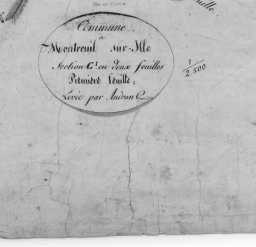 Commune
de
Montreuil sur Ille
Section C. en deux feuilles
Première feuille
Levée par
1/2500
feuille.